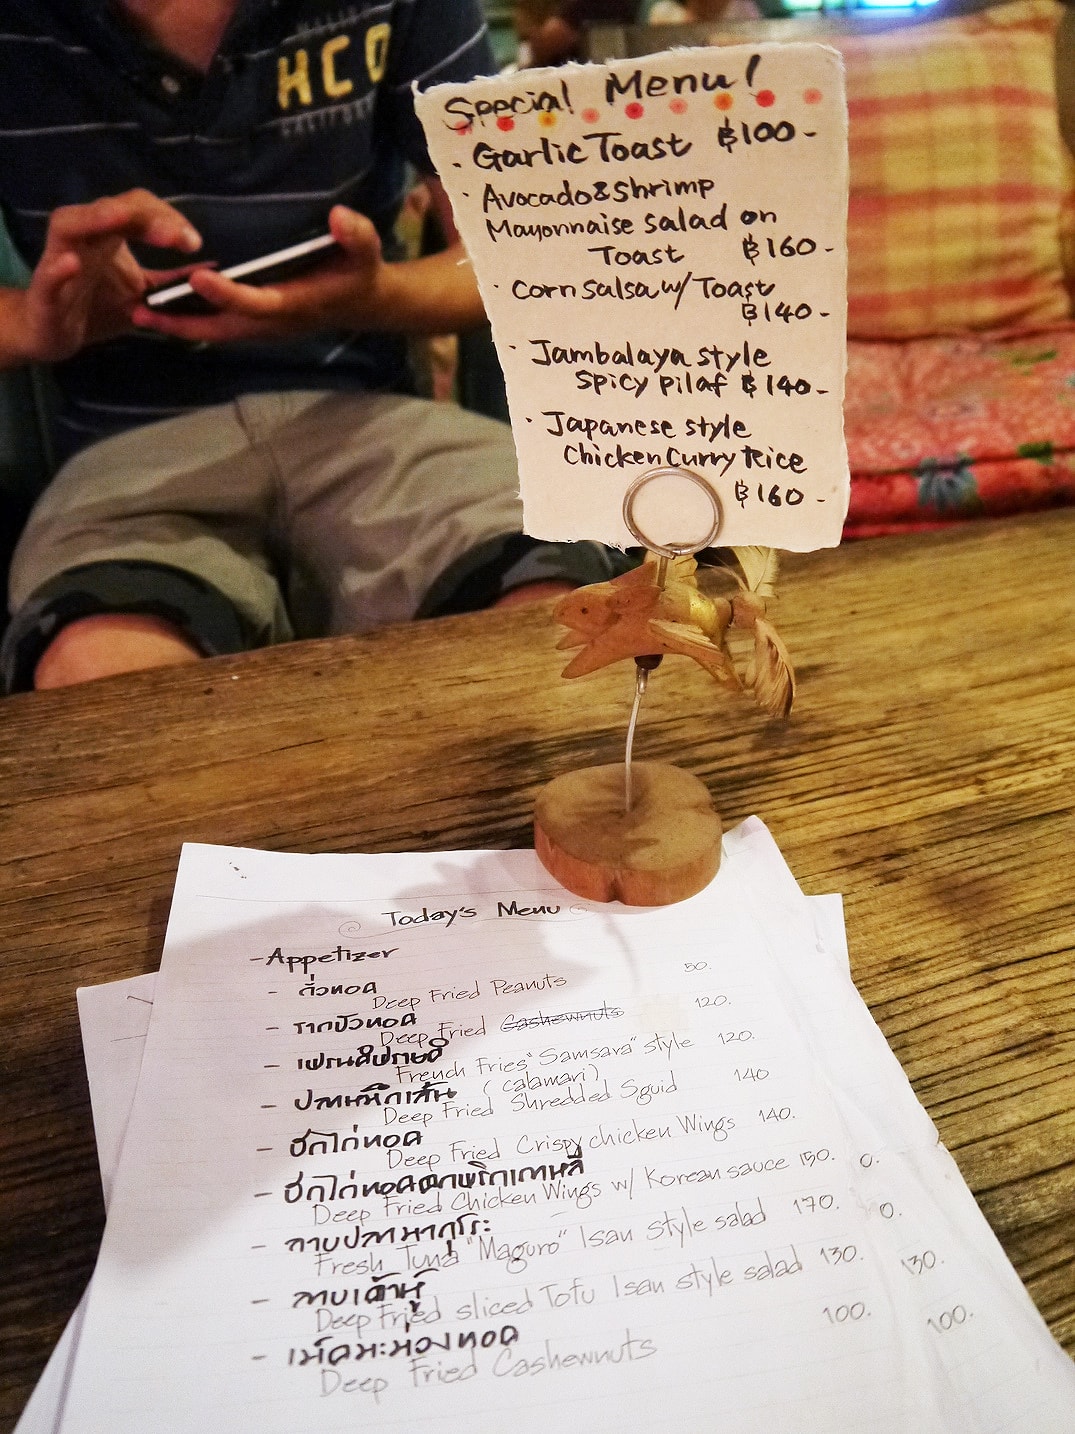 HCO
CALIFORNIA
Special Menu!
· Garlic Toast ฿100-
· Avocado & Shrimp
Mayonnaise salad on
Toast ฿160-
· Corn Salsa w/ Toast
฿140-
· Jambalaya style
Spicy Pilaf ฿140-
· Japanese style
Chicken Curry Rice
฿160-
Today's Menu
- Appetizer
- ถั่วทอด
Deep Fried Peanuts 50.
- รากบัวทอด
Deep Fried Cashewnuts 120.
- เฟรนส์ฟรายส์
French Fries "Samsara" style 120.
- ปลาหมึกเส้น (calamari)
Deep Fried Shredded Sguid 140
- ปีกไก่ทอด
Deep Fried Crispy chicken Wings 140.
- ปีกไก่ทอดซอสพริกเกาหลี
Deep Fried Chicken Wings w/ Korean sauce 150. 0.
- ลาบปลามากุโระ
Fresh Tuna "Maguro" Isan style salad 170. 0.
- ลาบเต้าหู้
Deep Fried sliced Tofu Isan style salad 130. 130.
- เม็ดมะม่วงทอด
Deep Fried Cashewnuts 100. 100.